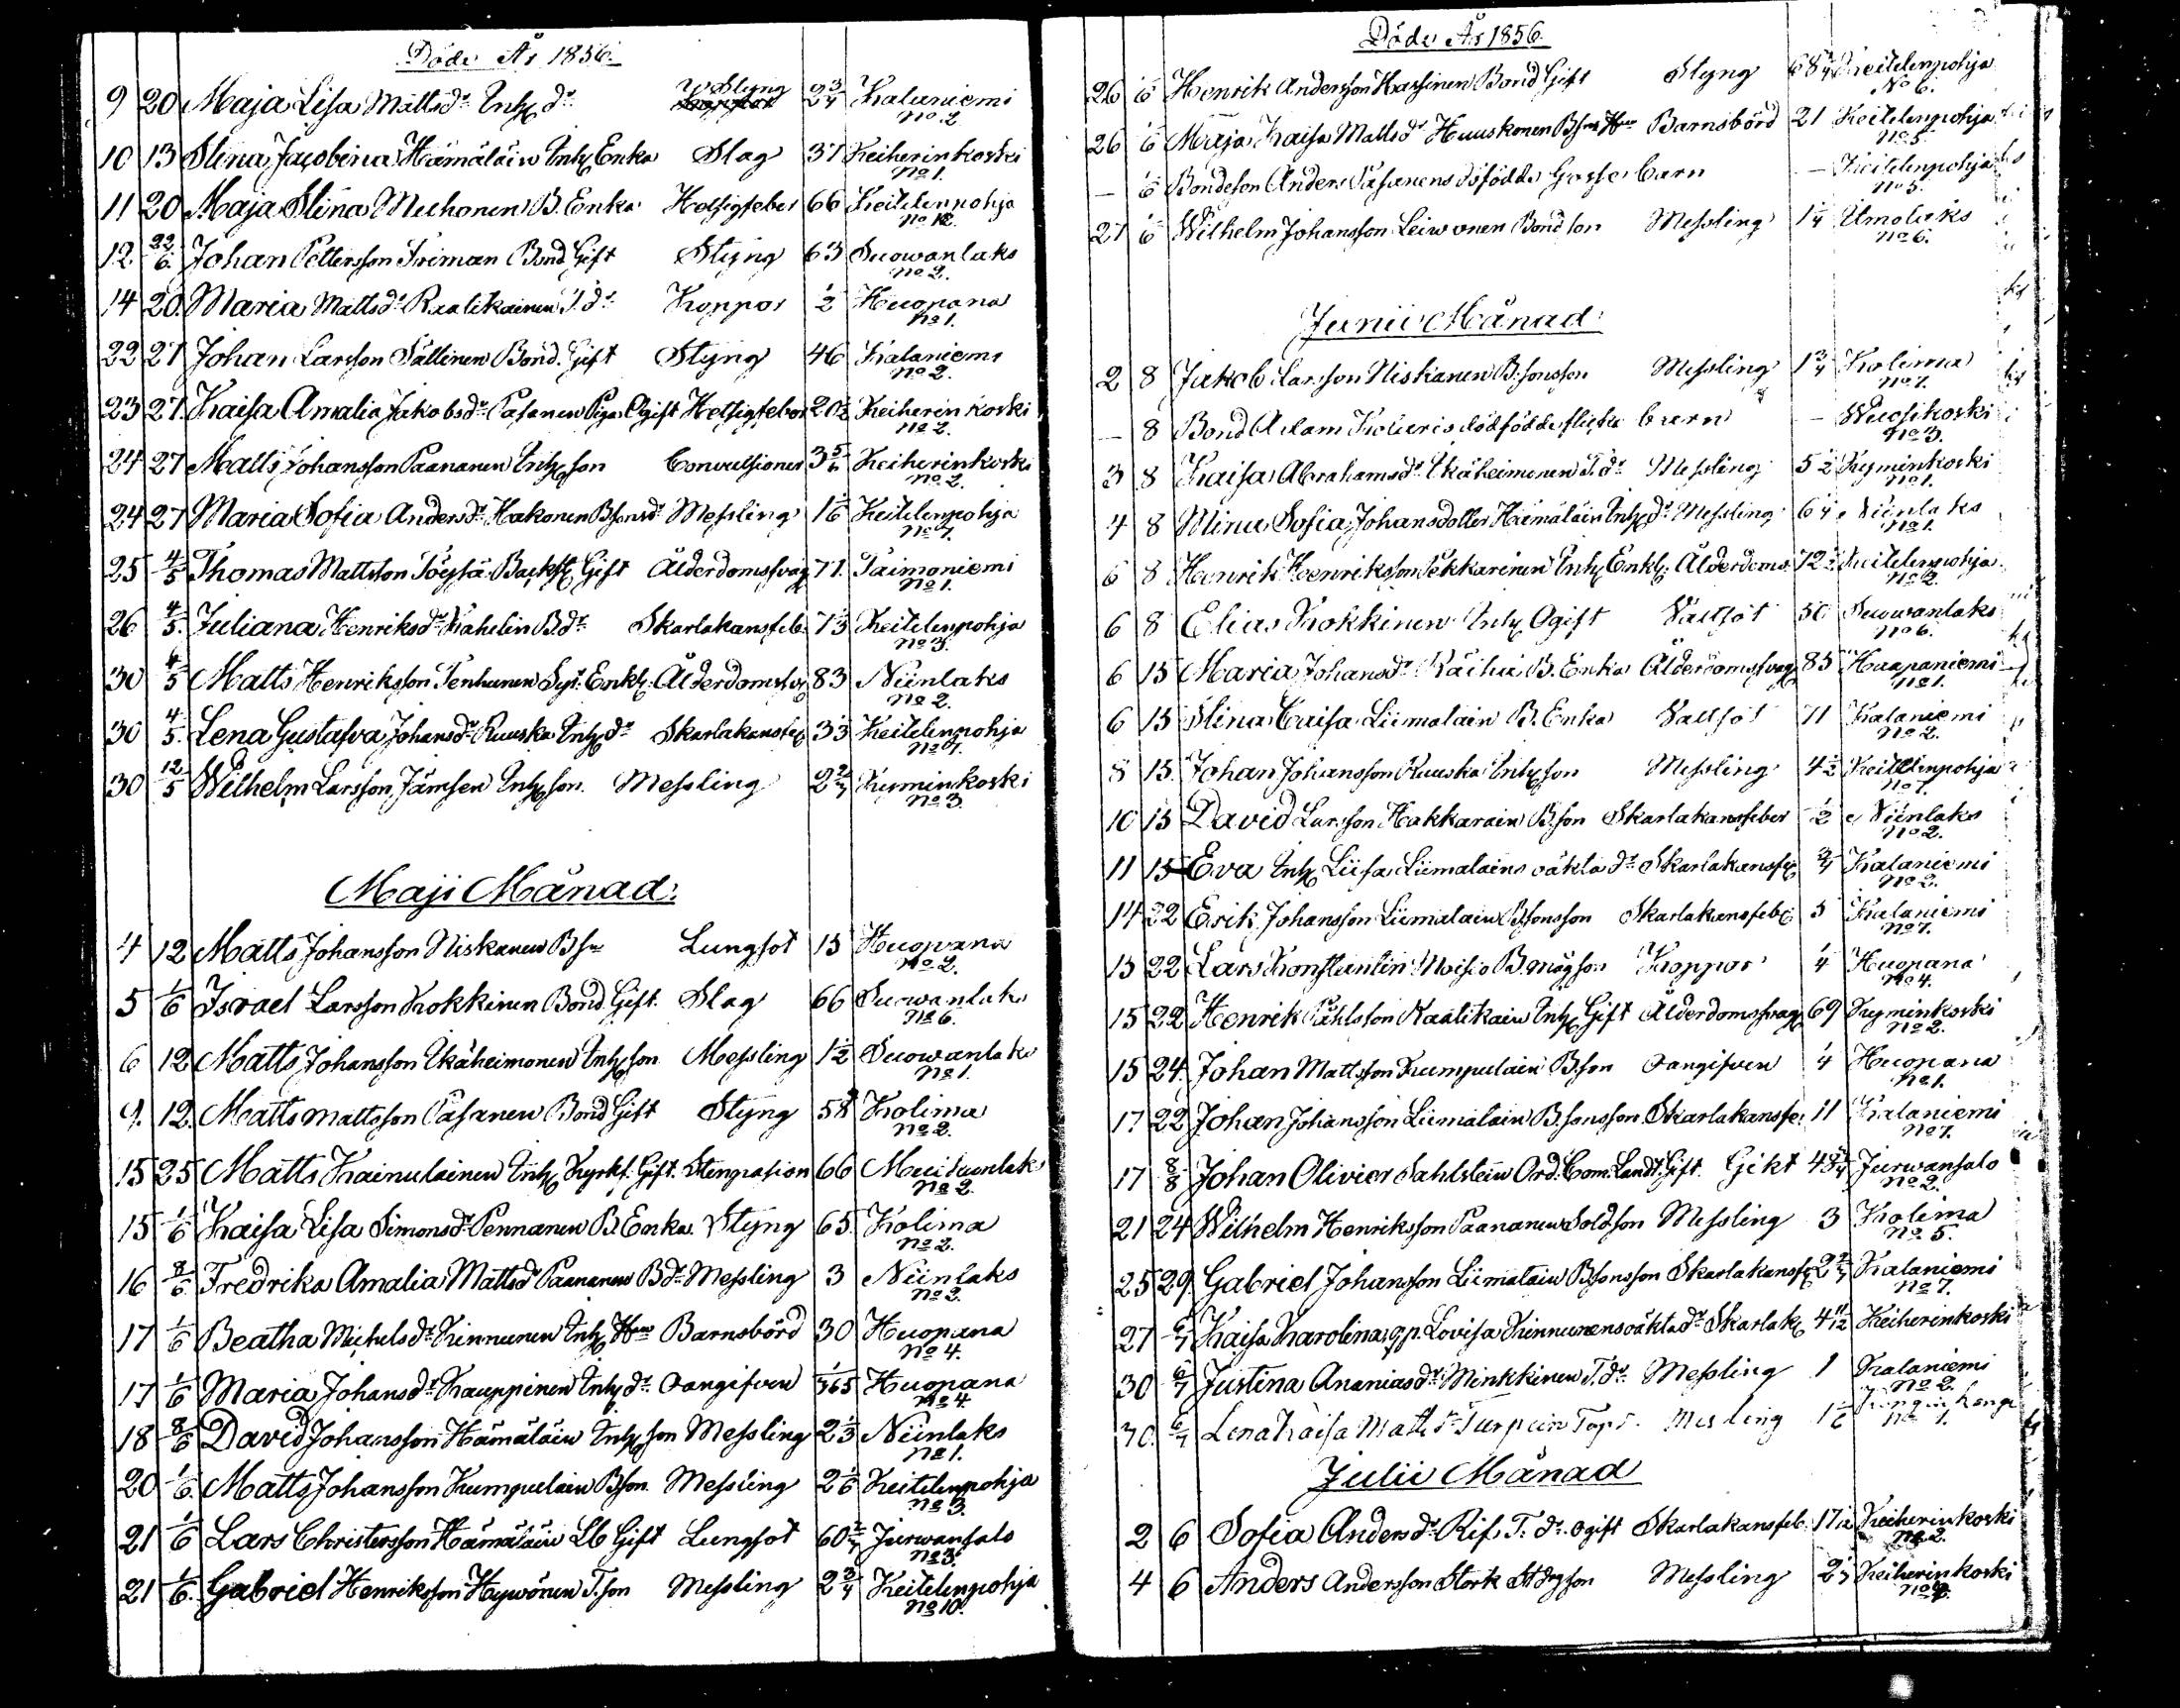 Döde År 1856.
9 20 Maja Lisa Mattsdr Inh dr Styng 2 3/4 Kalaniemi
No 2
10 13 Stina Jacobina Hämäläin Inh Enka Slag 37 Keiherinkoski
No 1.
11 20 Maja Stina Mechonen B. Enka Hetsigfeber 66 Keitelenpohja
No 12.
12 22/6 Johan Pettersson Friman Bond Gift Styng 63 Suowanlaks
No 2.
14 20. Maria Mattsdr Raatikainen T. dr Koppor 1/2 Huopana
No 1.
22 27 Johan Larsson Sällinen Bond. Gift Styng 46 Kalaniemi
No 2.
23 27. Kaisa Amalia Jakobsdr Pasanen Piga Ogift Hetsigfeber 20 1/2 Keiherinkoski
No 2.
24 27 Matts Johansson Paananen Inh son Convulsioner 3 5/6 Keiherinkoski
No 2.
24 27 Maria Sofia Andersdr Hakonen Bsonsdr Messling 1 1/6 Keitelenpohja
No 7.
25 4/5 Thomas Mattsson Töysä Backst Gift Ålderdomsvag 71. Taimoniemi
No 1.
26 4/5. Juliana Henriksdr Kahelin B. dr Skarlakansfeb. 7 1/3 Keitelenpohja
No 3.
30 4/5 Matts Henriksson Tenhunen Syt. Enkl. Ålderdomsvag 83 Niinlaks
No 2.
30 4/5. Lena Gustafva Johansdr Ruuska Inh dr Skarlakansfeb 3 1/3 Keitelenpohja
No 7.
30 12/5 Wilhelm Larsson Jämsen Inh son. Messling 2 2/7 Kyminkoski
No 3.
Maji Månad.
4 12 Matts Johansson Niskanen Bson Lungsot 15 Huopana
No 2.
5 1/6 Israel Larsson Kokkinen Bond. Gift. Slag 66 Suowanlaks
No 6.
6 12 Matts Johansson Ikäheimonen Inh son Messling 1 1/2 Suowanlaks
No 1.
9. 12. Matts Mattsson Pasanen Bond Gift Styng 58 Kolima
No 2.
15 25 Matts Kainulainen Inh Kyrkf. Gift. Stenpasion 66 Muituonlaks
No 2.
15 1/6 Kaisa Lisa Simonsdr Pennanen B. Enka. Styng 65. Kolima
No 2.
16 8/6 Fredrika Amalia Mattsdr Paananen B dr Messling 3 Niinlaks
No 2.
17 1/6 Beatha Michelsdr Kinnunen Inh Hru Barnsbörd 30 Huopana
No 4.
17 1/6 Maria Johansdr Kauppinen Inh dr Oangifven 1/365 Huopana
No 4.
18 8/6 David Johansson Hämäläin Inh son Messling 2 1/3 Niinlaks
No 1.
20 1/6. Matts Johansson Kumpulain Bson. Messling 2 1/6 Keitelenpohja
No 3.
21 1/6 Lars Christersson Hämäläin Lb Gift Lungsot 60 2/7 Jurwansalo
No 3.
21 1/6. Gabriel Henriksson Hywönen T. son Messling 2 3/4 Keitelenpohja
No 10.
Döde År 1856.
26 1/6 Henrik Andersson Hassinen Bond Gift Styng 68 Keitelenpohja
No 6.
26 1/6 Maja Kaisa Mattsdr Huuskonen Bsons Hru Barnsbörd 21 Keitelenpohja
No 5.
— 1/6 Bondeson Anders Pasanens dödfödde Gosse barn — Keitelenpohja
No 5.
27 1/6 Wilhelm Johansson Leiwonen Bondson Messling 1 1/4 Umolaks
No 6.
Junii Månad.
2 8 Jakob Larsson Niskanen B. sonsson Messling 1 3/4 Kolima
No 7.
— 8 Bond Adam Kolaris dödfödde flicke barn — Wuosikoski
No 3.
3 8 Kaisa Abrahamsdr Ikäheimonen T. dr Messling 5 1/2 Kyminkoski
No 1.
4 8 Mina Sofia Johansdotter Hämäläin Inh dr Messling 6 1/4 Niinlaks
No 1.
6 8 Henrik Henriksson Pekkarinen Inh Enkl. Ålderdoms. 72 Keitelenpohja
No 2.
6 8 Elias Kokkinen Inh Ogift Vattsot 50 Suowanlaks
No 6.
6 15 Maria Johansdr Räihä B. Enka Ålderdomsvag 85 Haapaniemi
No 1.
6 15 Stina Caisa Liimatain B. Enka Vattsot 71 Kalaniemi
No 2.
8 15. Johan Johansson Ruuska Inh son Messling 4 1/2 Keitelenpohja
No 7.
10 15 David Larsson Hakkarain B. son Skarlakansfeber 1/2 Niinlaks
No 2.
11 15 Eva Inh Liisa Liimatains oäkta dr Skarlakansfe 3/4 Kalaniemi
No 2.
14 22 Erik Johansson Liimatain Bsonsson Skarlakansfeb. 5 Kalaniemi
No 7.
15 22 Lars Konstantin Moisio B. mågson Koppor 1/4 Huopana
No 4.
15 22 Henrik Påhlsson Raatikain Inh Gift Ålderdomsvag 69 Kyminkoski
No 2.
15 24. Johan Mattsson Kumpulain B. son Oangifven 1/4 Huopana
No 1.
17 22 Johan Johansson Liimatain B. sonsson. Skarlakansfe. 11 Kalaniemi
No 7.
17 8/8 Johan Olivier Sahlstein Ord. Com. Landt. Gift. Gikt 48 3/4 Jurwansalo
No 2.
21 24 Wilhelm Henriksson Paananen Soldson Messling 3 Kolima
No 5.
25 29. Gabriel Johansson Liimatain Bsonsson Skarlakansfe 2 2/7 Kalaniemi
No 7.
27 6/7 Kaisa Karolina, qp. Lovisa Kinnunens oäkta dr Skarlak 4 11/12 Keiherinkoski
30 6/7 Justina Ananiasdr Minkkinen T. dr Messling 1 Kalaniemi
No 2.
30. 6/7 Lena Kaisa Mattsdr Turpein Messling 1 1/6
No 1.
Julii Månad
2 6 Sofia Andersdr Rif. T. dr Ogift Skarlakansfeb. 17 Keiherinkoski
No 2.
4 6 Anders Andersson Stork Messling 2 Keiherinkoski